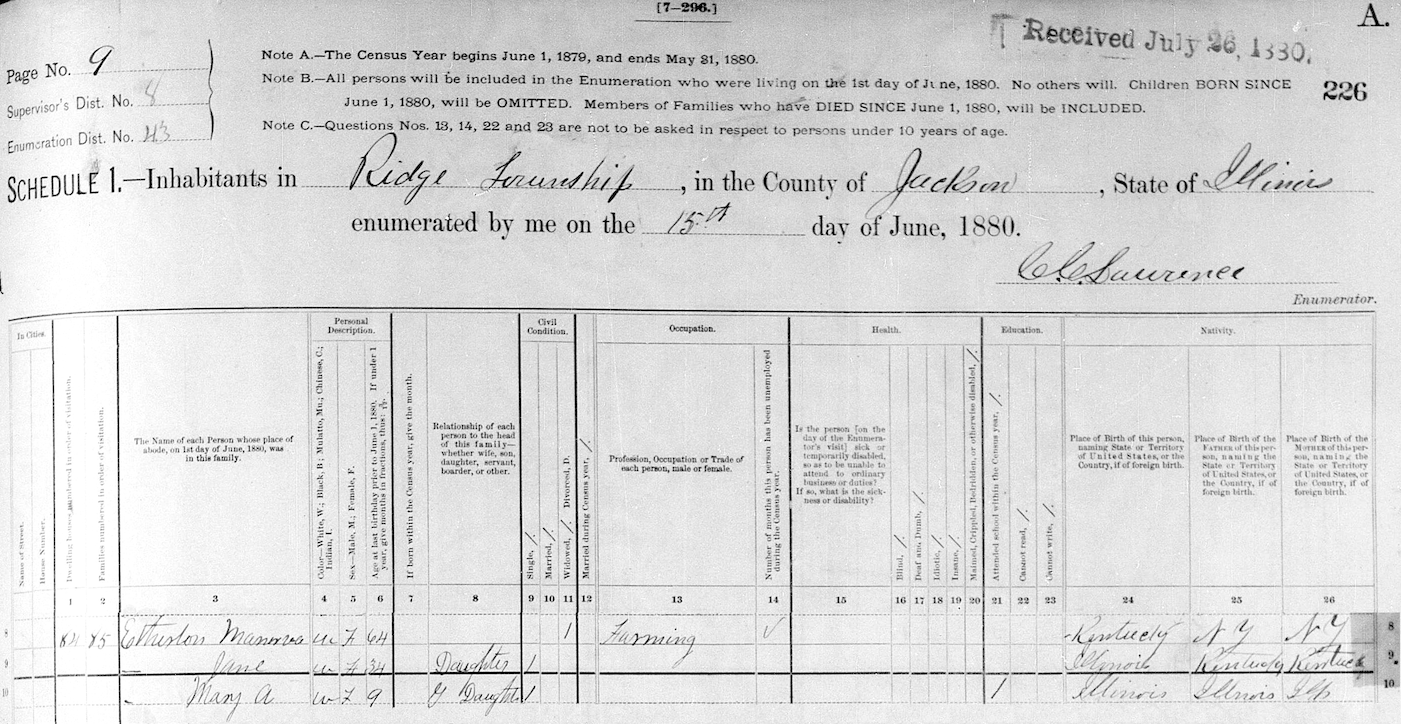 [7-296.]
A.
Received July 26, 1880.
Page No. 9
Supervisor's Dist. No. 8
Enumeration Dist. No. 43
Note A.—The Census Year begins June 1, 1879, and ends May 31, 1880.
Note B.—All persons will be included in the Enumeration who were living on the 1st day of June, 1880. No others will. Children BORN SINCE
June 1, 1880, will be OMITTED. Members of Families who have DIED SINCE June 1, 1880, will be INCLUDED.
Note C.—Questions Nos. 13, 14, 22 and 23 are not to be asked in respect to persons under 10 years of age.
226
SCHEDULE 1.—Inhabitants in Ridge Township, in the County of Jackson, State of Illinois
enumerated by me on the 15th day of June, 1880.
C.C. Lawrence
Enumerator.
In Cities.
Name of Street.
House Number.
Dwelling houses numbered in order of visitation.
Families numbered in order of visitation.
The Name of each Person whose place of
abode, on 1st day of June, 1880, was
in this family.
Personal
Description.
Color—White, W.; Black, B; Mulatto, Mu.; Chinese, C.;
Indian, I.
Sex—Male, M.; Female, F.
Age at last birthday prior to June 1, 1880. If under 1
year, give months in fractions, thus:
If born within the Census year, give the month.
Relationship of each
person to the head
of this family—
whether wife, son,
daughter, servant,
boarder, or other.
Civil
Condition.
Single, /.
Married, /.
Widowed, /. Divorced, D.
Married during Census year, /.
Occupation.
Profession, Occupation or Trade of
each person, male or female.
Number of months this person has been unemployed
during the Census year.
Health.
Is the person [on the
day of the Enumera-
tor's visit] sick or
temporarily disabled,
so as to be unable to
attend to ordinary
business or duties?
If so, what is the sick-
ness or disability?
Blind, /.
Deaf and Dumb, /.
Idiotic, /.
Insane, /.
Maimed, Crippled, Bedridden, or otherwise disabled, /.
Education.
Attended school within the Census year, /.
Cannot read, /.
Cannot write, /.
Nativity.
Place of Birth of this person,
naming State or Territory
of United States, or the
Country, if of foreign birth.
Place of Birth of the
FATHER of this per-
son, naming the
State or Territory
of United States, or
the Country, if of
foreign birth.
Place of Birth of the
MOTHER of this per-
son, naming the
State or Territory
of United States, or
the Country, if of
foreign birth.
1 2 3 4 5 6 7 8 9 10 11 12 13 14 15 16 17 18 19 20 21 22 23 24 25 26
8 85 Etherton Manerva W F 64 1 Farming Kentucky N Y N Y 8
9 — Jane W F 34 Daughter 1 Illinois Kentucky Kentuck 9
10 — Mary A W F 9 G Daughter 1 1 Illinois Illinois Ills 10